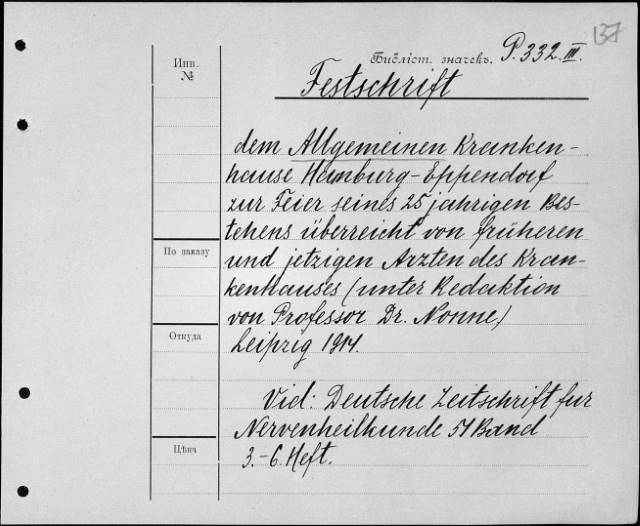 137
Инв. №
Библіот. значекъ. P. 332. III.
Festschrift
dem Allgemeinen Kranken-
hause Hamburg-Eppendorf
zur Feier seines 25 jahrigen Bes-
tehens überreicht von früheren
und jetzigen Arzten des Kran-
kenhauses (unter Redaktion
von Professor Dr. Nonne)
Leipzig 1914.
По заказу
Откуда
Цѣна
Vid: Deutsche Zeitschrift fur
Nervenheilkunde 51 Band
3.-6. Heft.